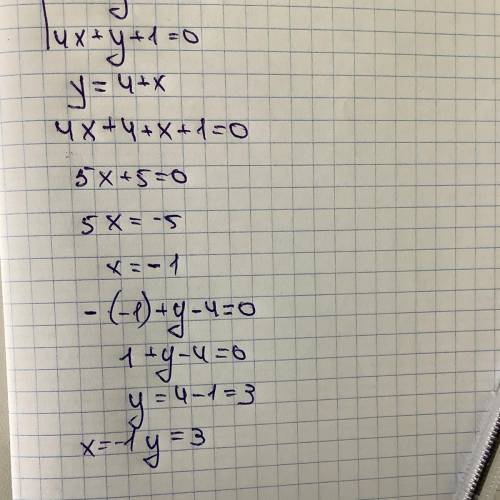 4x+y+1=0
y=4+x
4x+4+x+1=0
5x+5=0
5x=-5
x=-1
-(-1)+y-4=0
1+y-4=0
y=4-1=3
x=-1 y=3